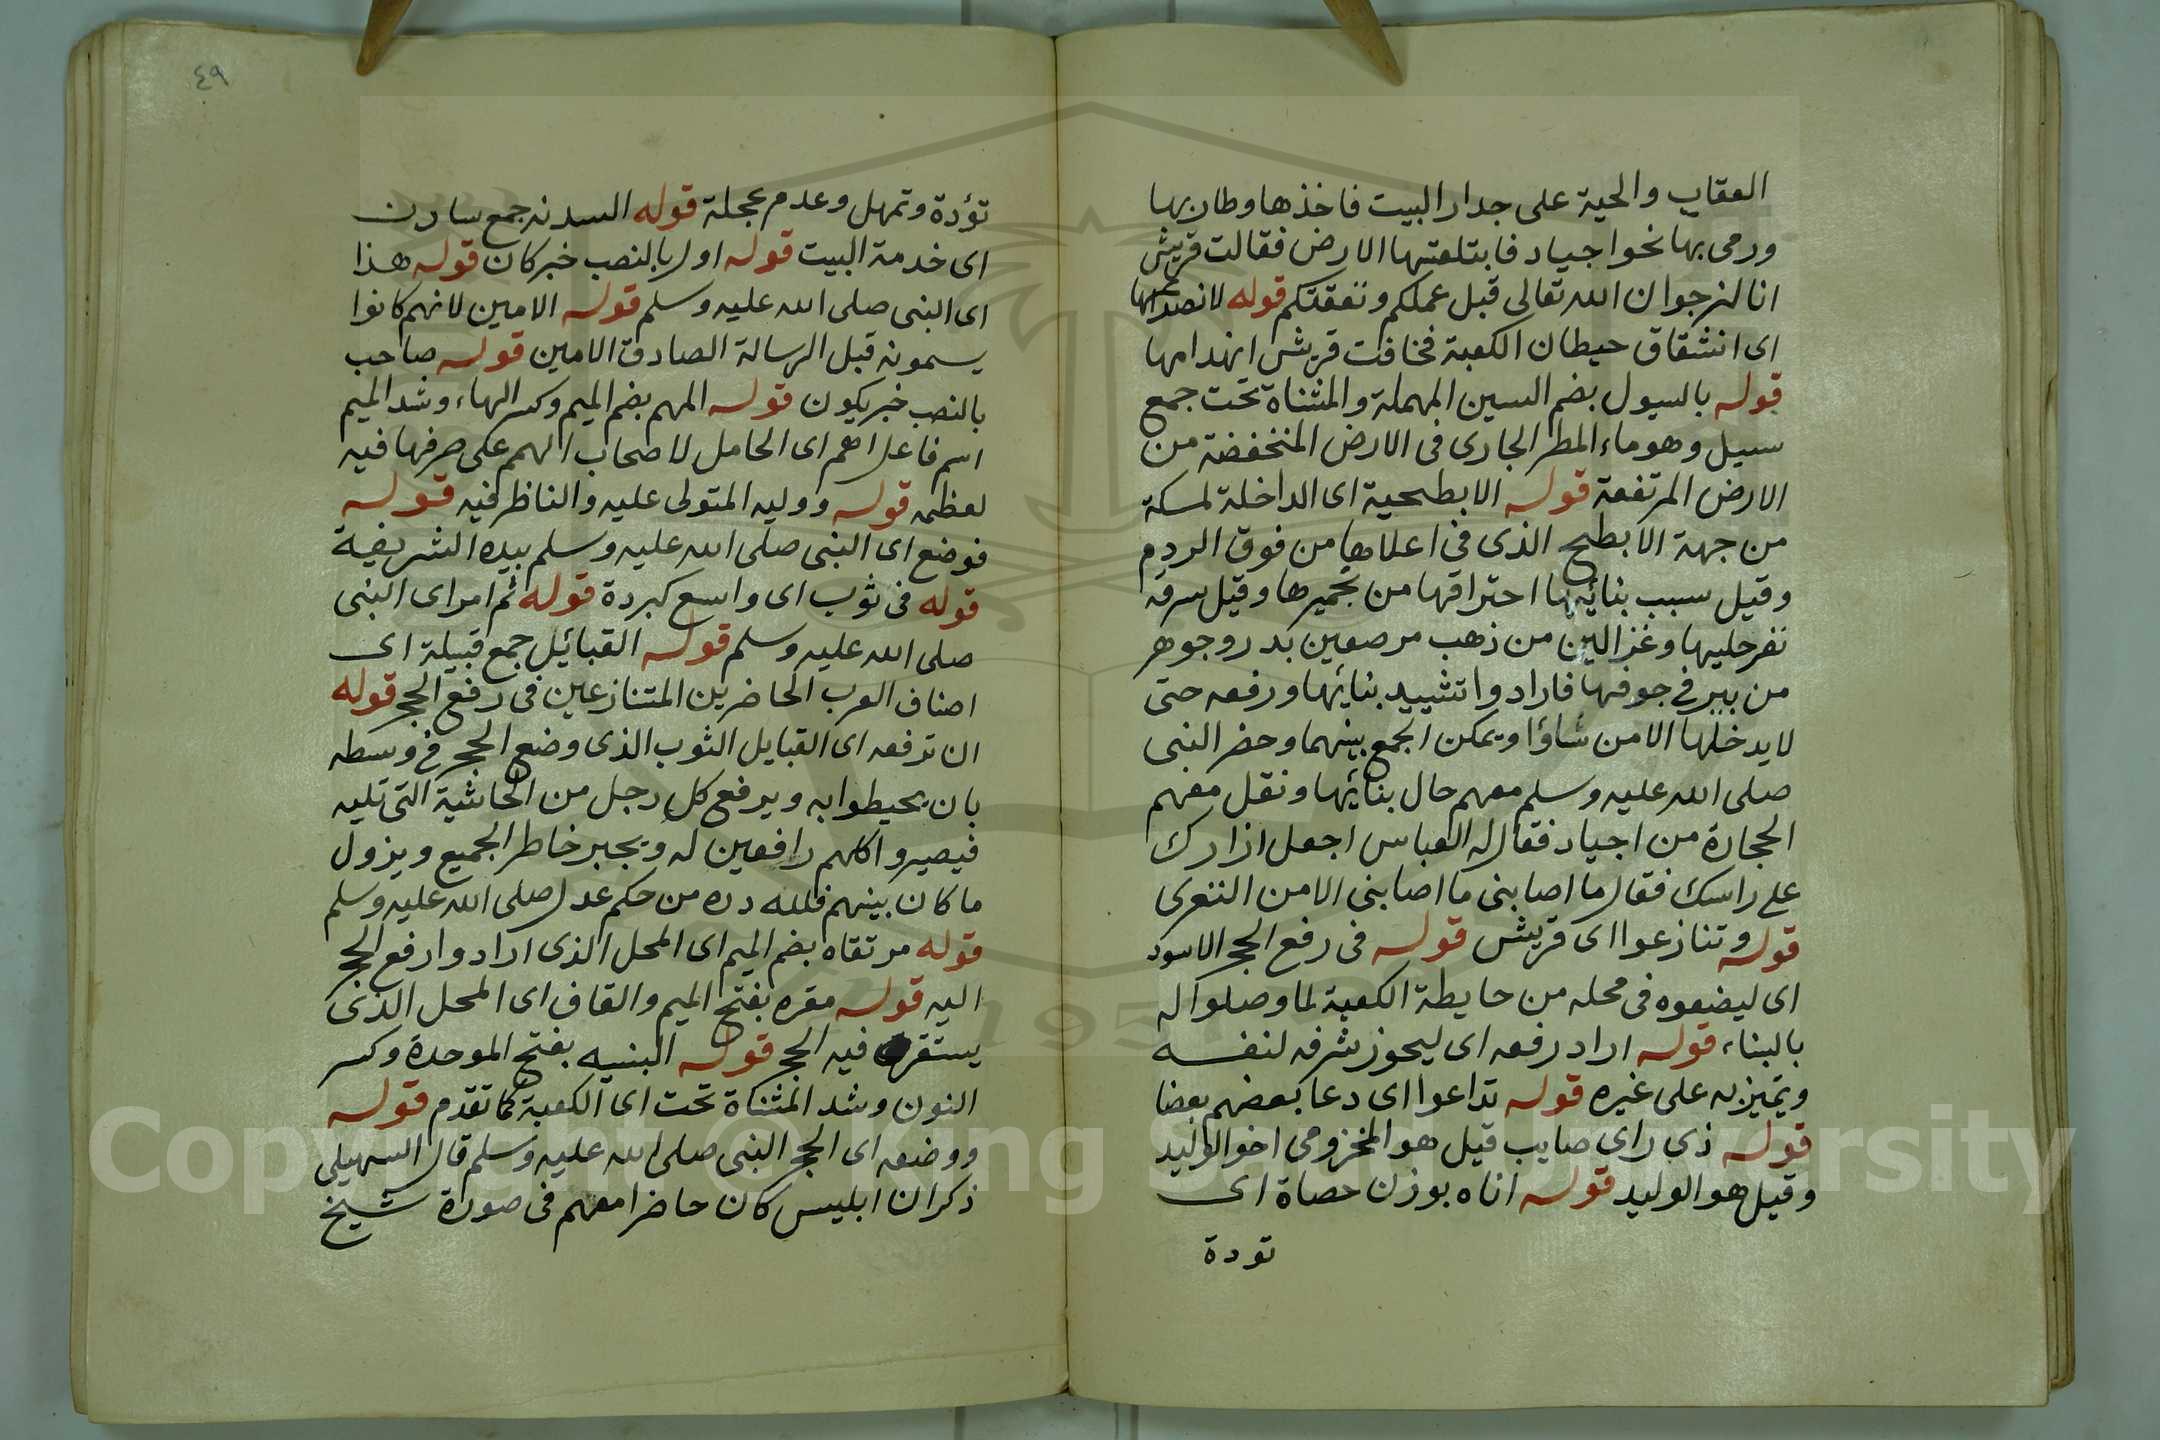 العقاب والحية على جدار البيت فاخذها وطار بها
ورمى بها نحو اجياد فابتلعتها الارض فقالت قريش
انا لنرجوا ان الله تعالى قبل عملكم ونفقتكم قوله لانصداعها
اى انشقاق حيطان الكعبة فخافت قريش انهدامها
قوله بالسيول بضم السين المهملة والمثناة تحت جمع
سيل وهو ماء المطر الجارى فى الارض المنخفضة من
الارض المرتفعة قوله الابطحية اى الداخلة لمكة
من جهة الابطح الذى فى اعلاها من فوق الردم
وقيل سبب بنائها احتراقها من تجميرها وقيل سرقة
نفر حليها وغزالين من ذهب مرصعين بدر وجوهر
من بير فى جوفها فارادوا تشييد بنائها ورفعه حتى
لا يدخلها الا من شاؤا ويمكن الجمع بينهما وحضر النبى
صلى الله عليه وسلم معهم حال بنائها ونقل معهم
الحجارة من اجياد فقال له العباس اجعل ازارك
على راسك فقال ما اصابنى ما اصابنى الا من التعرى
قوله وتنازعوا اى قريش قوله فى رفع الحجر الاسود
اى ليضعوه فى محله من حايطة الكعبة لما وصلوا له
بالبناء قوله اراد رفعه اى ليحوز شرفه لنفسه
ويتميز به على غيره قوله تداعوا اى دعا بعضهم بعضا
قوله ذى راى صايب قيل هو المخزومى اخو الوليد
وقيل هو الوليد قوله اناه بوزن حصاة اى
تودة
٤٩
تؤدة وتمهل وعدم عجلة قوله السدنه جمع سادن
اى خدمة البيت قوله اول بالنصب خبر كان قوله هذا
اى النبى صلى الله عليه وسلم قوله الامين لانهم كانوا
يسمونه قبل الرسالة الصادق الامين قوله صاحب
بالنصب خبر يكون قوله المهم بضم الميم وكسر الهاء وشد الميم
اسم فاعل اهم اى الحامل لاصحاب الهمم على صرفها فيه
لعظمه قوله ووليه المتولى عليه والناظر فيه قوله
فوضع اى النبى صلى الله عليه وسلم بيده الشريفة
قوله فى ثوب اى واسع كبردة قوله ثم امر اى النبى
صلى الله عليه وسلم قوله القبائل جمع قبيلة اى
اصناف العرب الحاضرين المتنازعين فى رفع الحجر قوله
ان ترفعه اى القبايل الثوب الذى وضع الحجر فى وسطه
بان يحيطوا به ويرفع كل رجل من الحاشية التى تليه
فيصيروا كلهم رافعين له ويجبر خاطر الجميع ويزول
ما كان بينهم فلله دره من حكم عدل صلى الله عليه وسلم
قوله مرتقاه بضم الميم اى المحل الذى ارادوا رفع الحجر
اليه قوله مقره بفتح الميم والقاف اى المحل الذى
يستقر فيه الحجر قوله البنيه بفتح الموحدة وكسر
النون وشد المثناة تحت اى الكعبة كما تقدم قوله
ووضعه اى الحجر النبى صلى الله عليه وسلم قال السهيلى
ذكر ان ابليس كان حاضرا معهم فى صورة شيخ
Copyright © King Saud University
1957